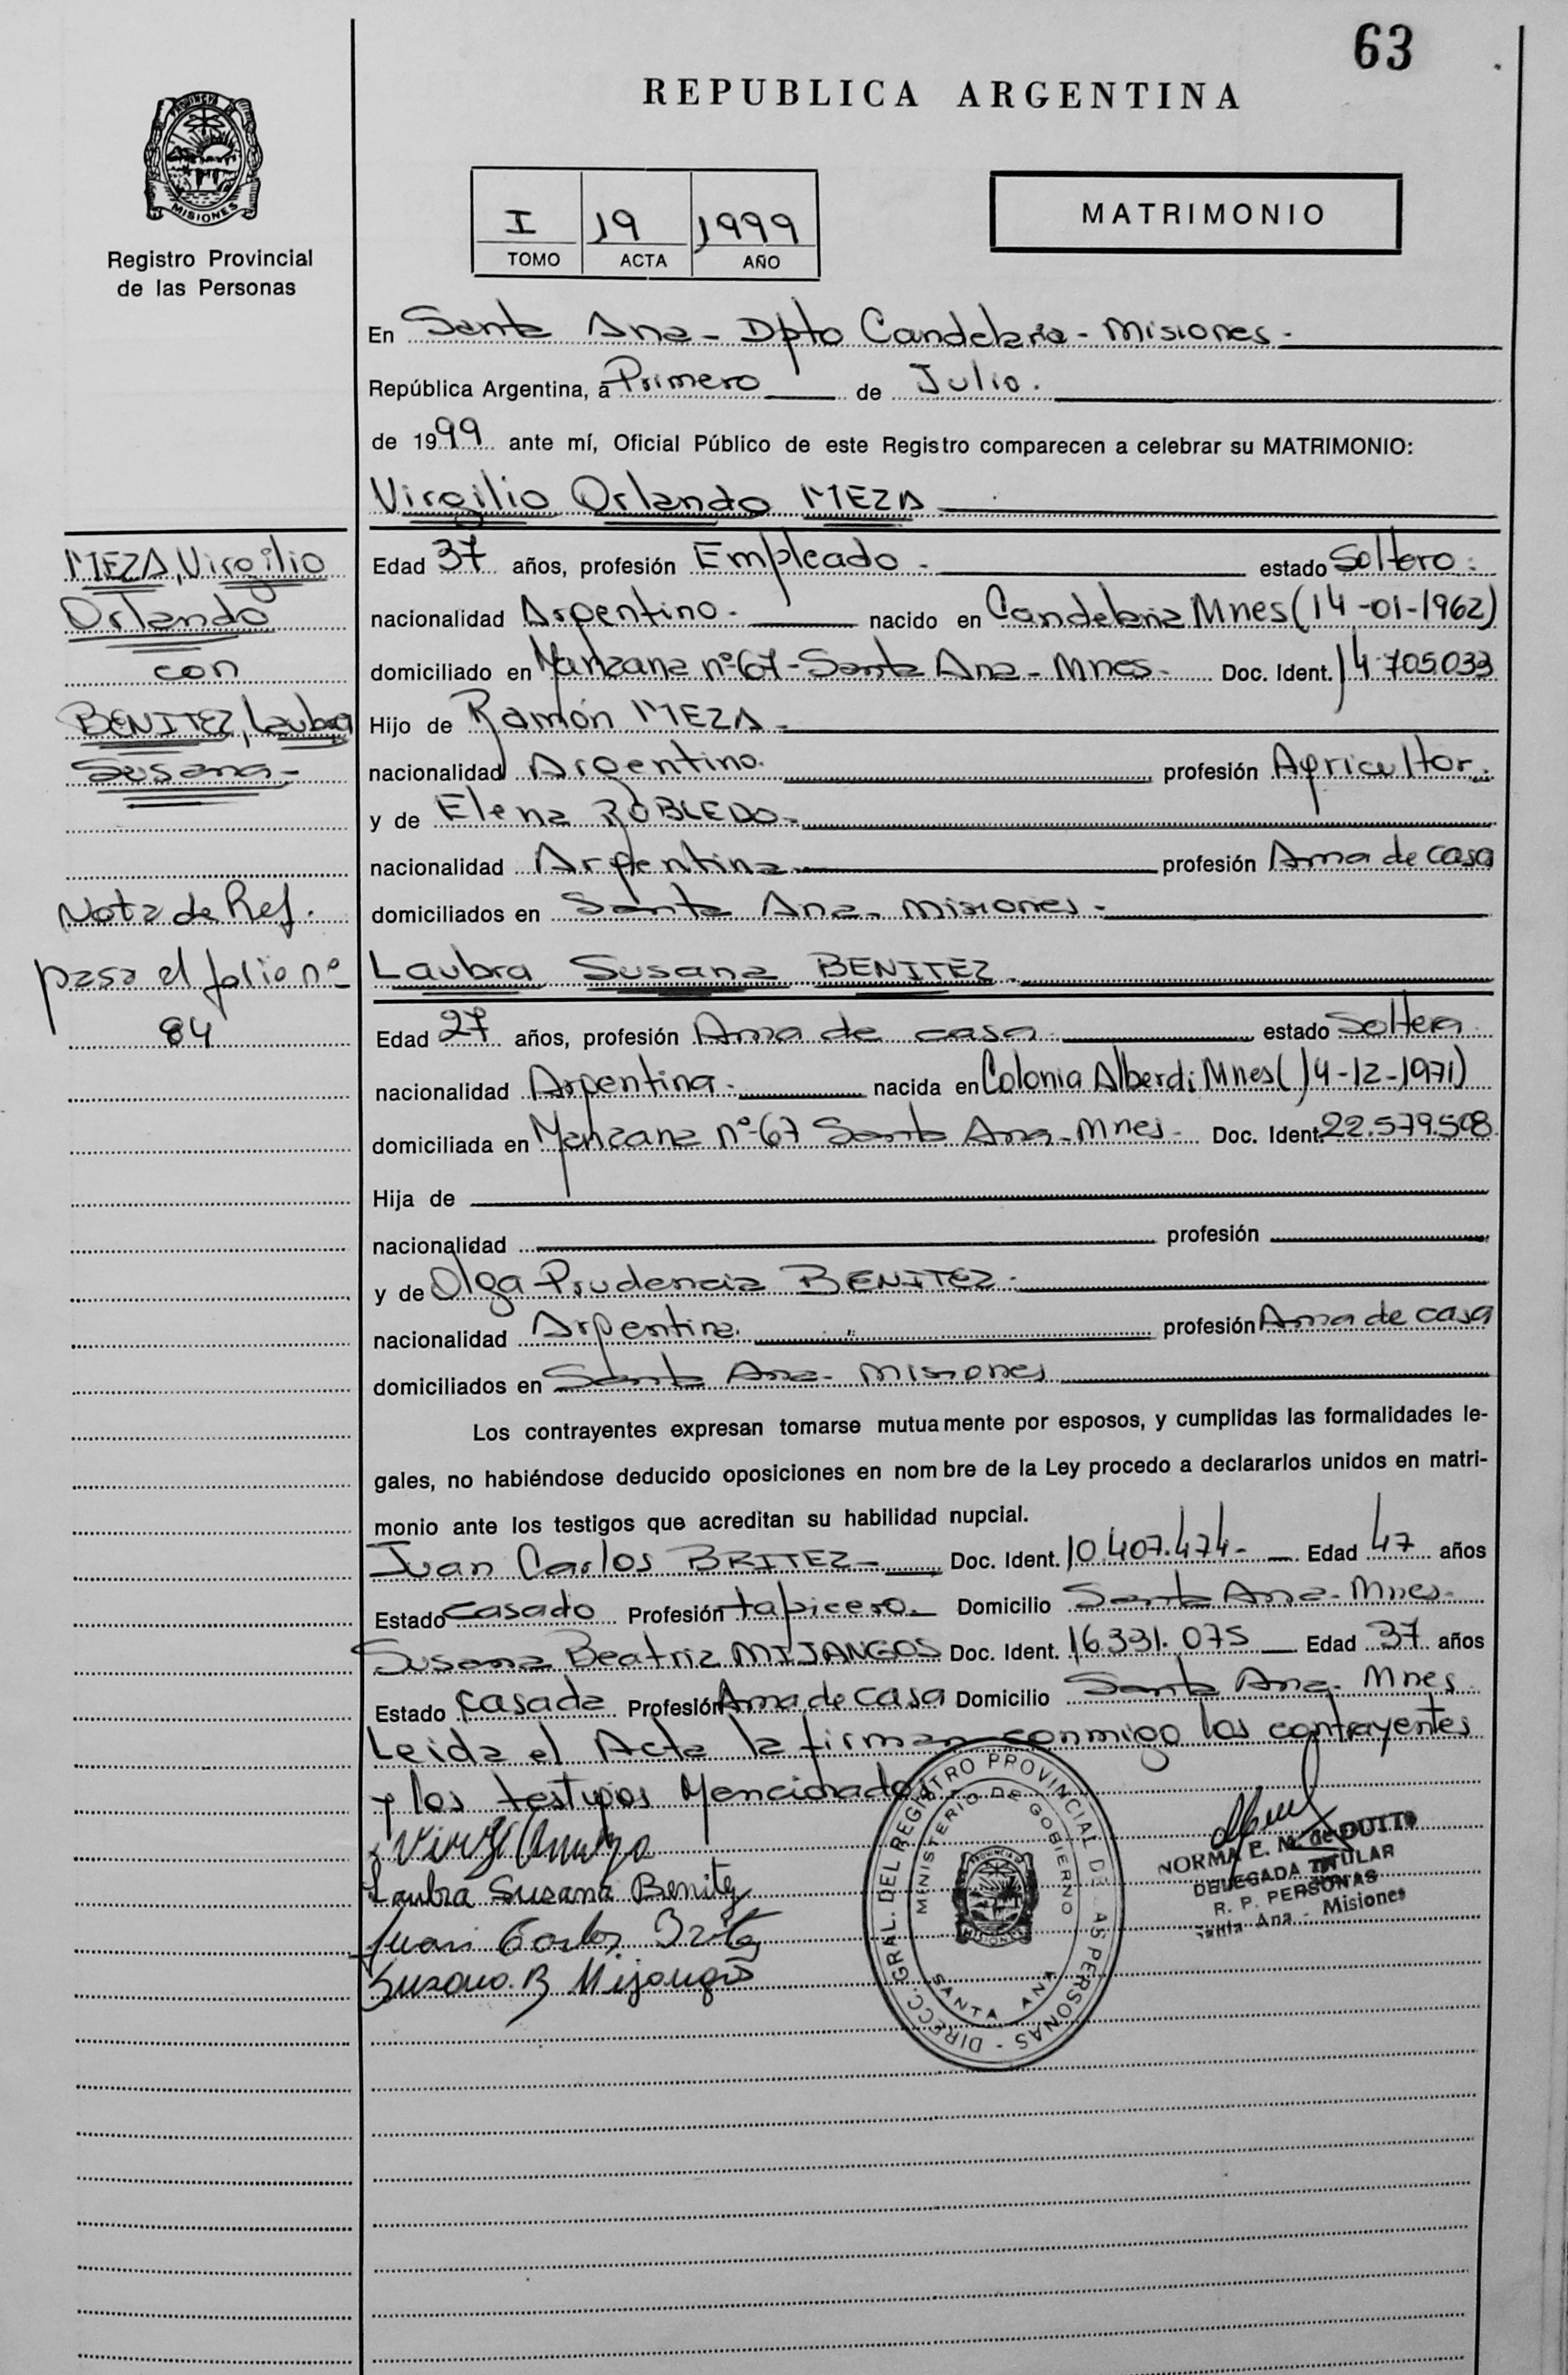 63
REPUBLICA ARGENTINA
MISIONES
Registro Provincial
de las Personas
I 19 1999
TOMO ACTA AÑO
MATRIMONIO
En Santa Ana - Dpto Candelaria - Misiones -
República Argentina, a Primero de Julio.
de 1999 ante mí, Oficial Público de este Registro comparecen a celebrar su MATRIMONIO:
Virgilio Orlando MEZA
MEZA, Virgilio
Orlando
con
BENITEZ, Laubra
Susana -
Nota de Ref.
pasa el folio nº
84
Edad 37 años, profesión Empleado - estado Soltero -
nacionalidad Argentino - nacido en Candelaria Mnes (14-01-1962)
domiciliado en Manzana nº 67 - Santa Ana - Mnes - Doc. Ident. 14.705.033
Hijo de Ramón MEZA -
nacionalidad Argentino. profesión Agricultor.
y de Elena ROBLEDO -
nacionalidad Argentina profesión Ama de casa
domiciliados en Santa Ana - Misiones -
Laubra Susana BENITEZ -
Edad 27 años, profesión Ama de casa estado Soltera
nacionalidad Argentina - nacida en Colonia Alberdi Mnes (14-12-1971)
domiciliada en Manzana nº 67 Santa Ana - Mnes - Doc. Ident. 22.579.508
Hija de
nacionalidad profesión
y de Olga Prudencia BENITEZ -
nacionalidad Argentina. profesión Ama de casa
domiciliados en Santa Ana - Misiones
Los contrayentes expresan tomarse mutuamente por esposos, y cumplidas las formalidades le-
gales, no habiéndose deducido oposiciones en nombre de la Ley procedo a declararlos unidos en matri-
monio ante los testigos que acreditan su habilidad nupcial.
Juan Carlos BRITEZ - Doc. Ident. 10.407.474 - Edad 47 años
Estado casado Profesión tapicero. Domicilio Santa Ana - Mnes -
Susana Beatriz MIJANGOS Doc. Ident. 16.331.075 Edad 37 años
Estado casada Profesión Ama de casa Domicilio Santa Ana - Mnes
Leida el Acta la firman conmigo los contrayentes
y los testigos Mencionados
Laubra Susana Benitez
Juan Carlos Britez
Susana B Mijangos
DIRECC. GRAL. DEL REGISTRO PROVINCIAL DE LAS PERSONAS -
MINISTERIO DE GOBIERNO
MISIONES
SANTA ANA
NORMA E. M. de
DELEGADA TITULAR
R. P. PERSONAS
Santa Ana - Misiones